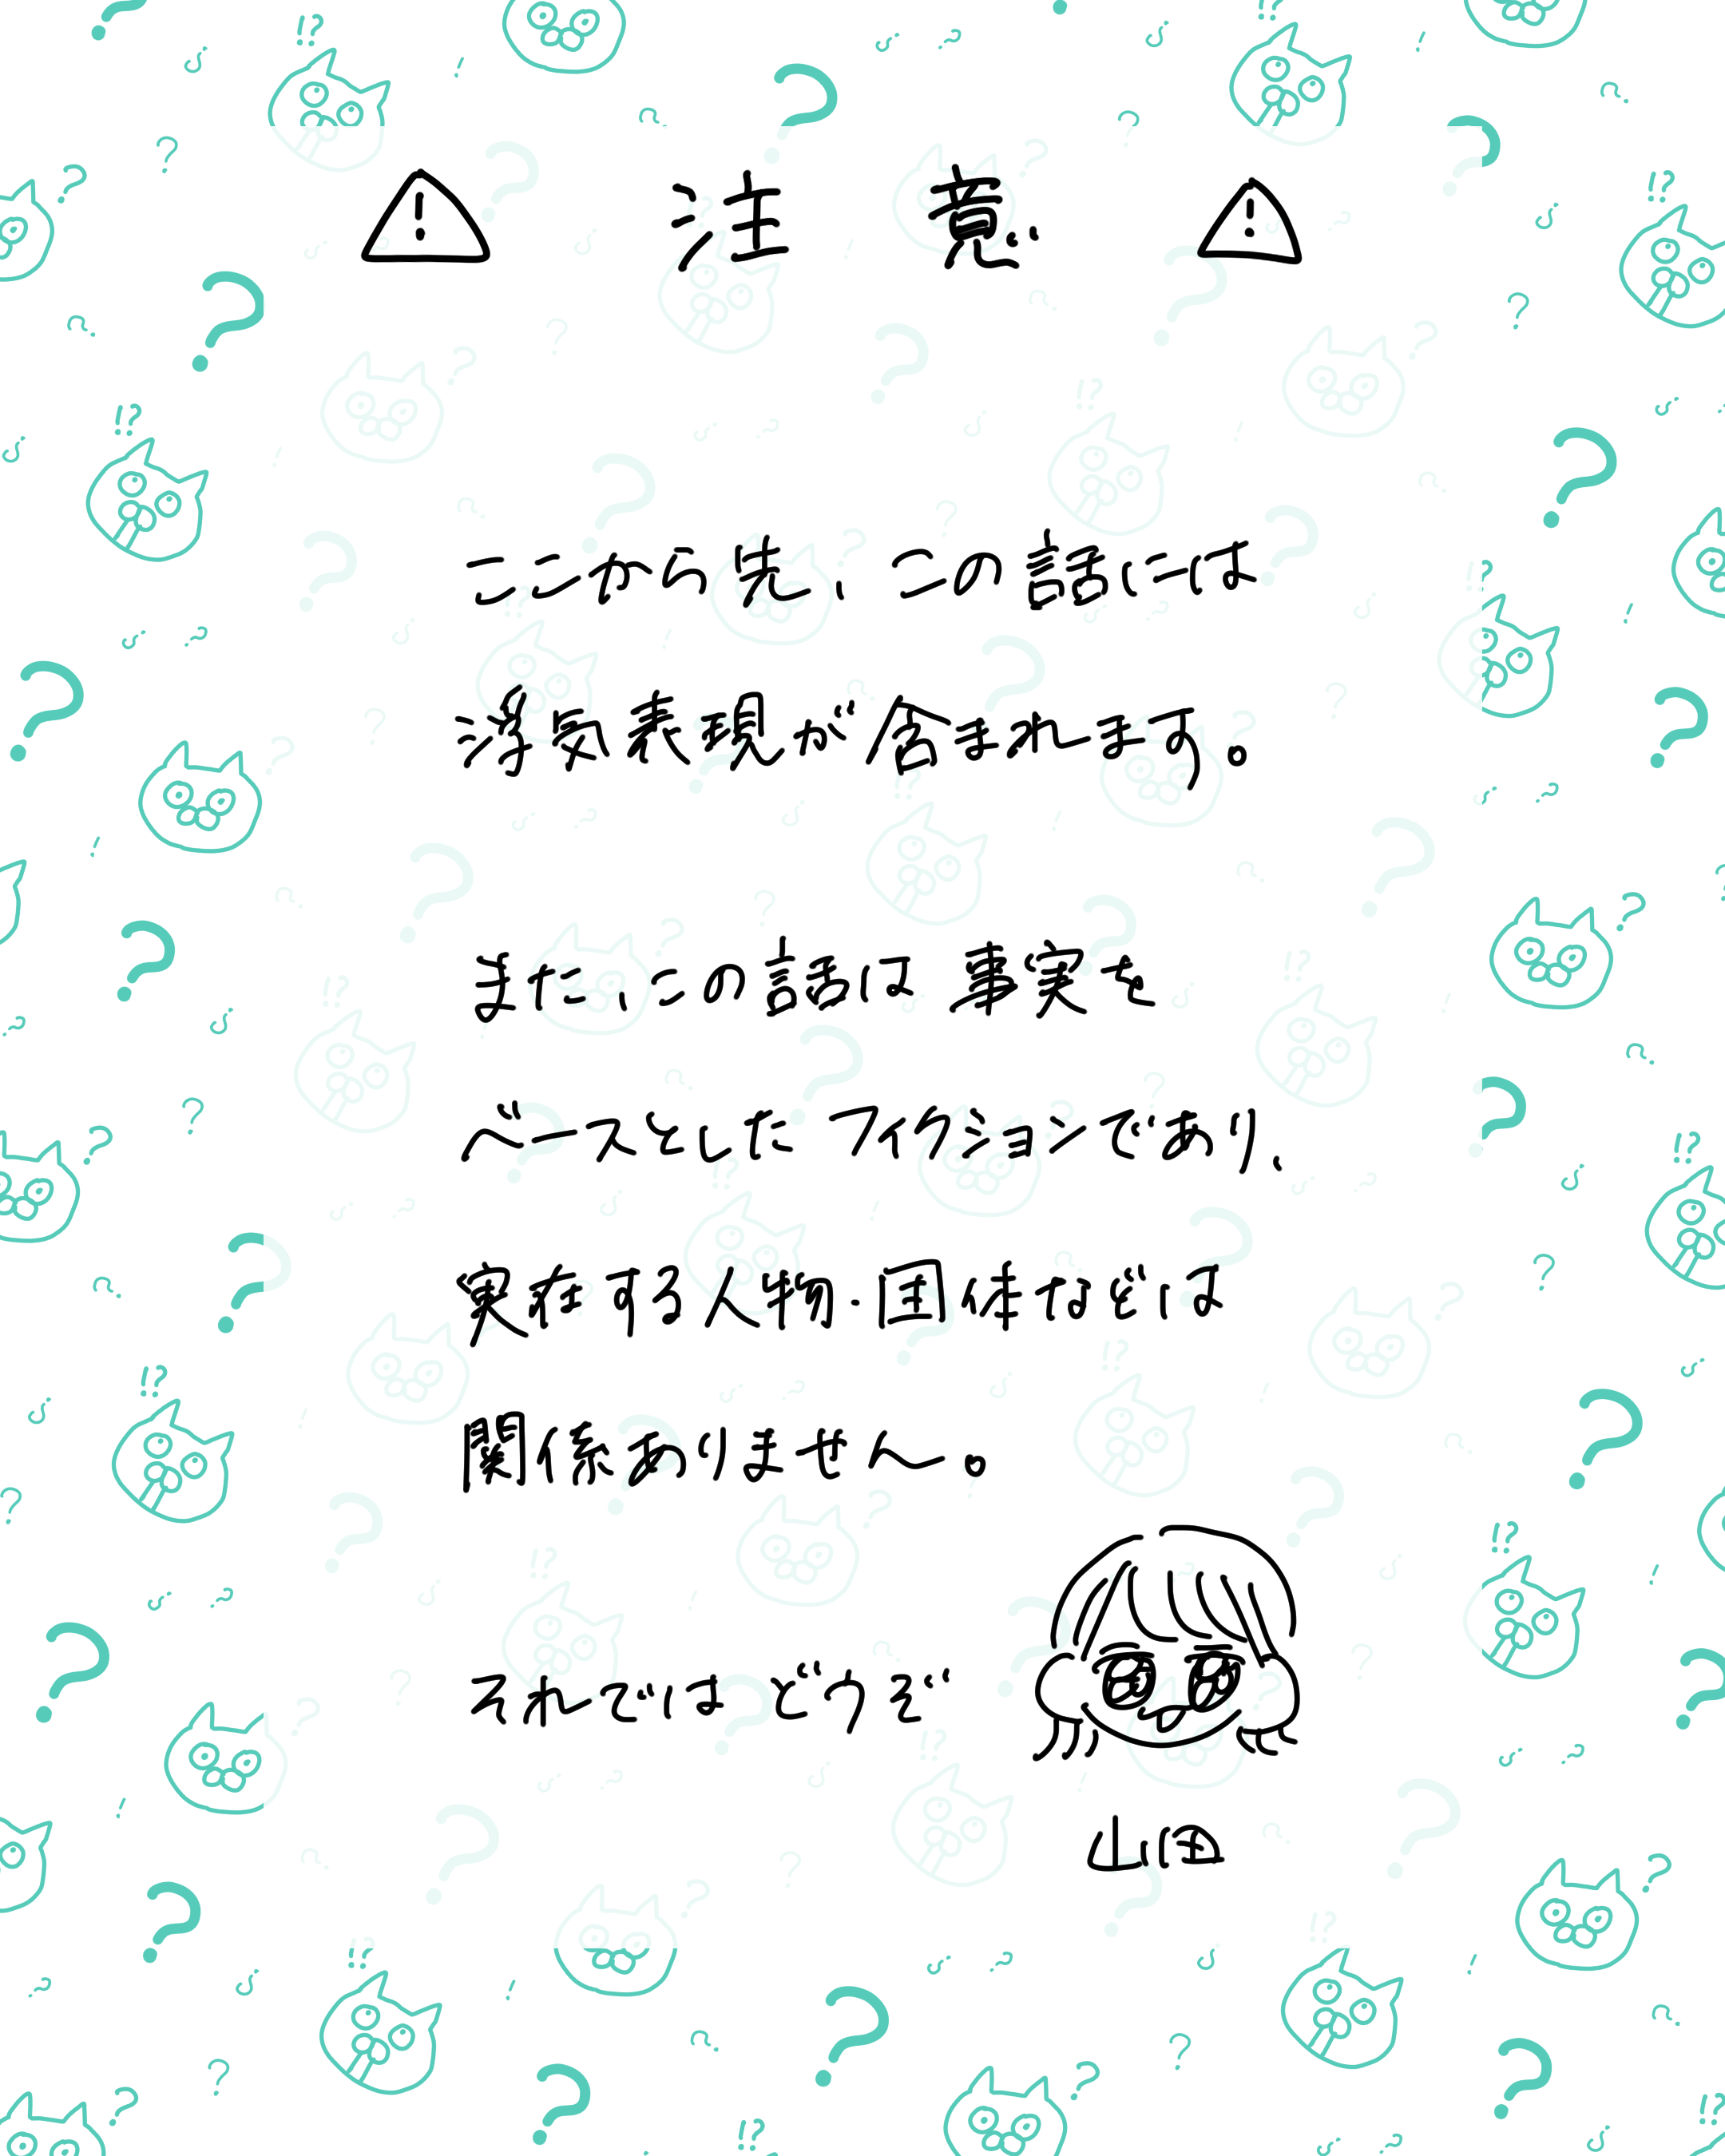 ⚠ 注意 ⚠
ここから先、この話には
浮気表現が含まれます。
また、この話は事実を
ベースとしたフィクションであり、
実在する人物・団体などは
関係ありません。
それではどうぞ
山田